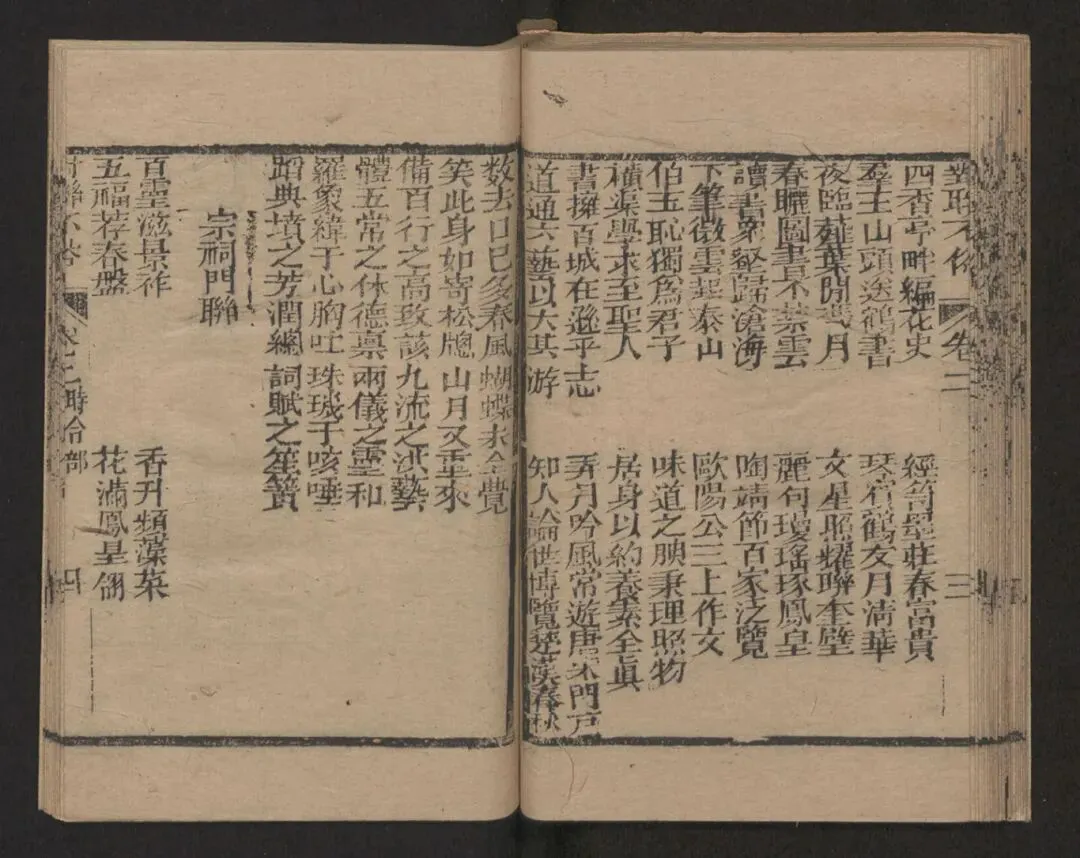 對聯不俗 卷二 三
四香亭畔編花史 經笥墨莊春富貴
羣玉山頭送鶴書 琴宿鶴友月清華
夜臨薤葉開戔月 文星照耀聯奎壁
春曬圖書不禁雲 麗句瓊瑤琢鳳皇
讀書穿壑歸滄海 陶靖節百家泛覽
下筆微雲起泰山 歐陽公三上作文
伯玉恥獨為君子 味道之腴秉理照物
橫渠學求至聖人 居身以約養素全眞
書擁百城在遜乎志 弄月吟風常遊唐宋門戶
道通六藝以大其游 知人論世博覽楚漢春秋
数去日已多春風蝴蝶未全覺
笑此身如寄松牕山月又重來
備百行之高致該九流之洪藝
體五常之休德禀兩儀之靈和
羅象緯于心胸吐珠璣于咳唾
蹈典墳之芳潤總詞賦之笙簧
宗祠門聯
百靈滋景祚 香升蘋藻菜
五福荐春盤 花滿鳳皇翎
對聯不俗 卷之二時令部 四